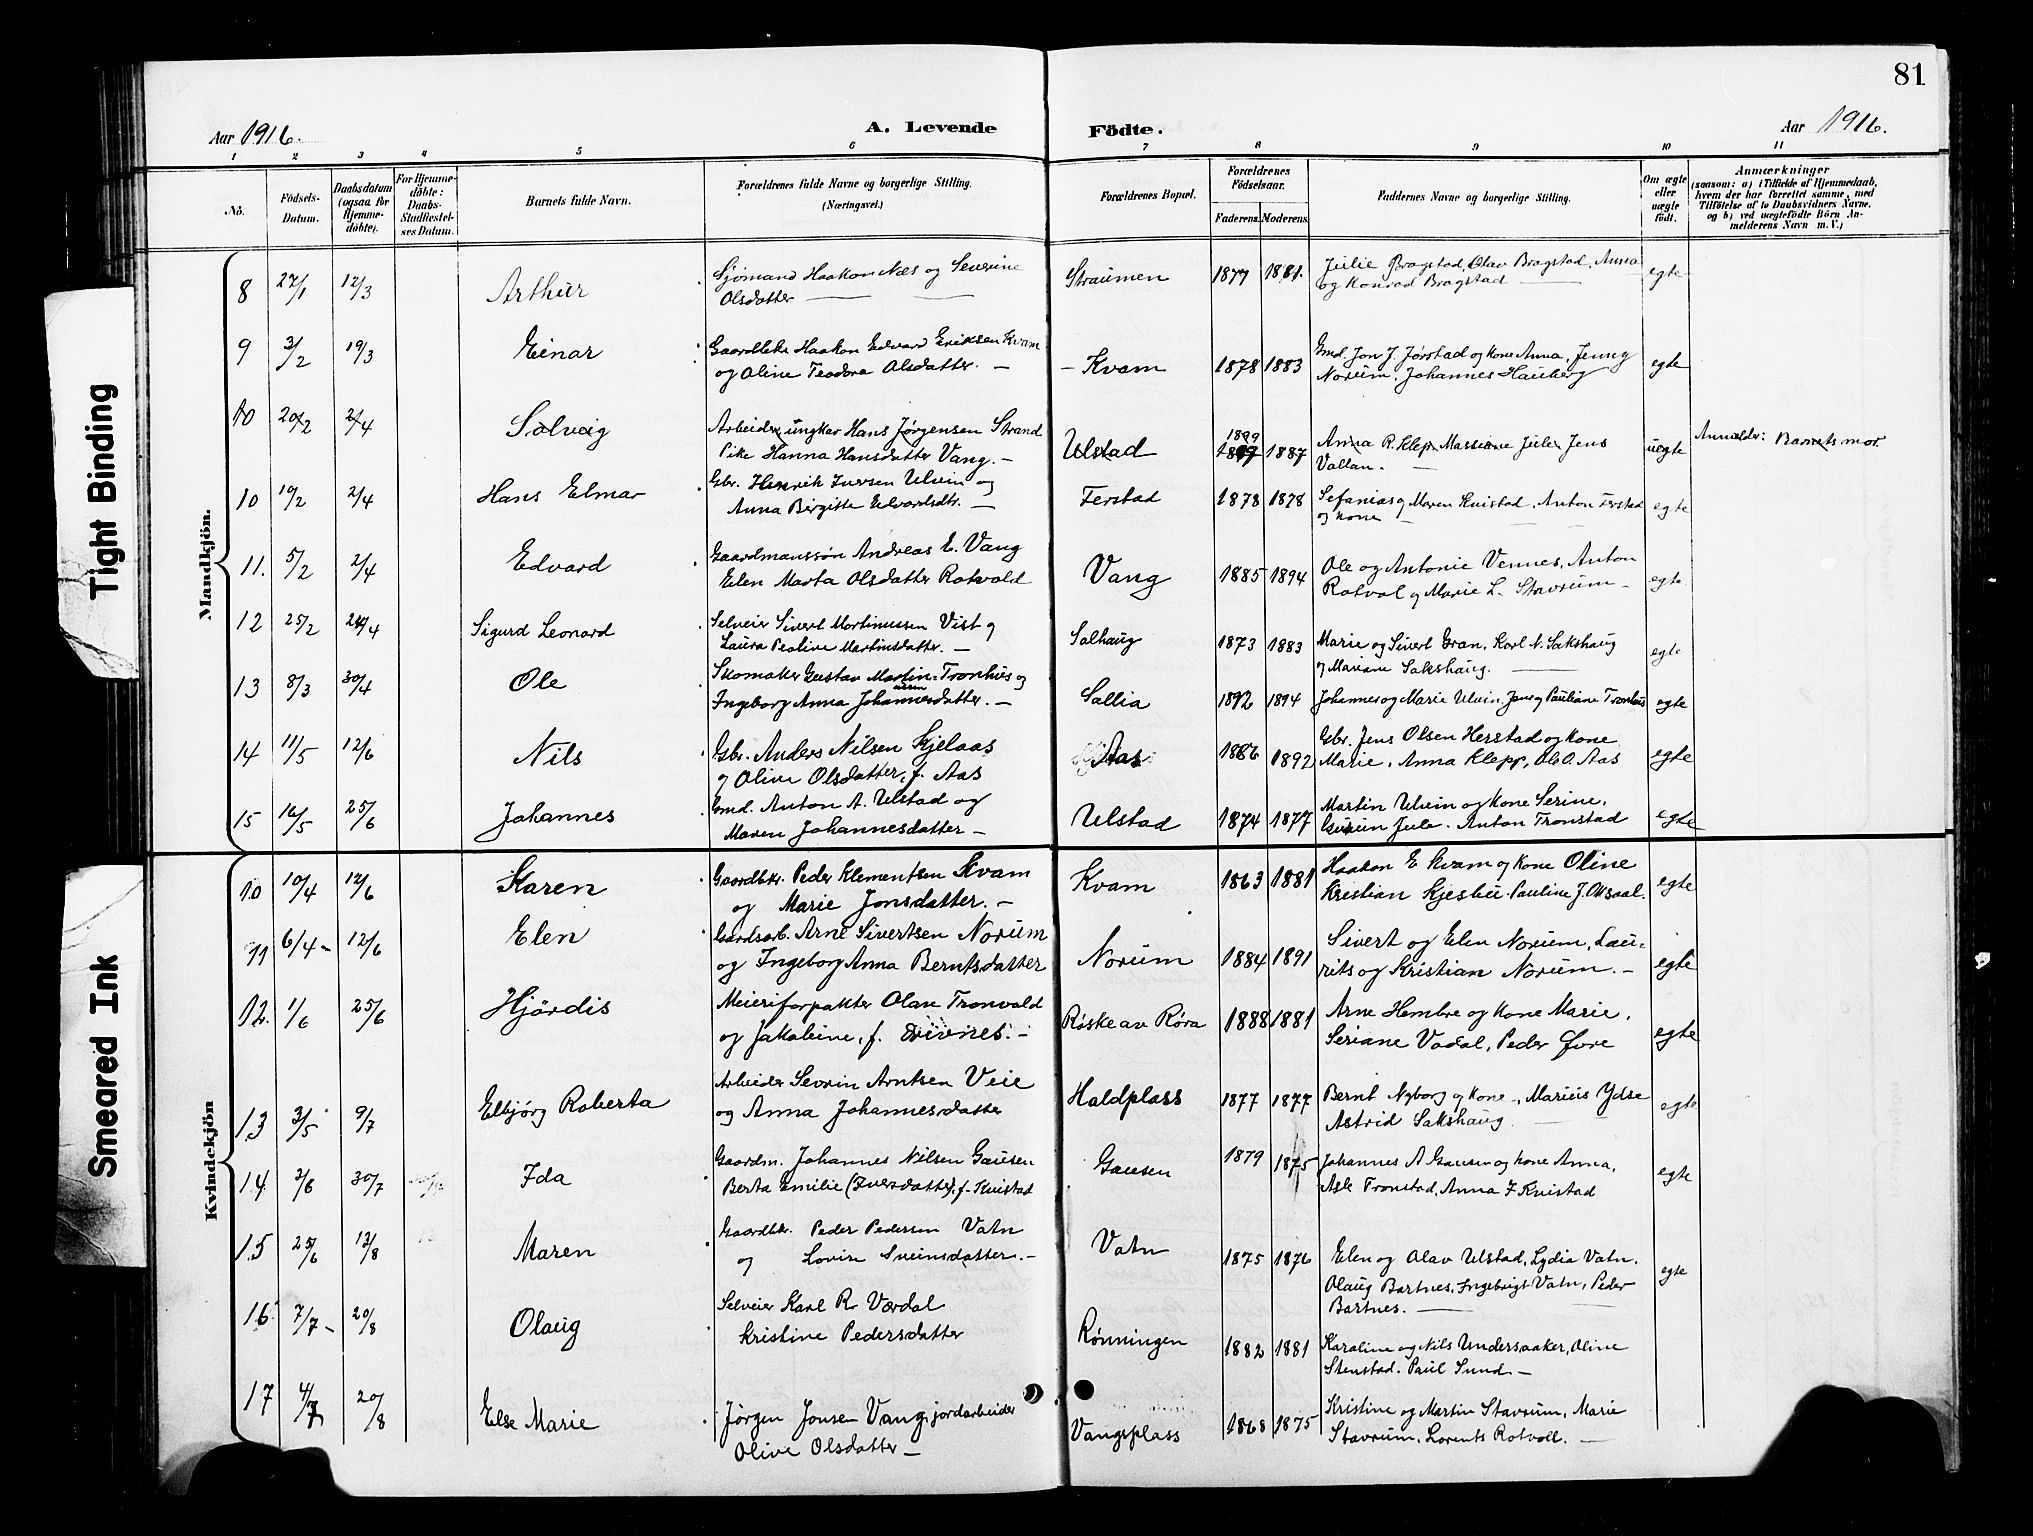 81
Aar 1916.
A. Levende
Födte.
Aar 1916.
1 2 3 4 5 6 7 8 9 10 11
No.
Födsels-Datum.
Daabsdatum (ogsaa for Hjemmedöbte).
For Hjemmedöbte: Daabs-Stadfæstelses Datum.
Barnets fulde Navn.
Forældrenes fulde Navne og borgerlige Stilling. (Næringsvei.)
Forældrenes Bopæl.
Forældrenes Födselsaar.
Faderens. Moderens.
Faddernes Navne og borgerlige Stilling.
Om ægte eller uægte födt.
Anmærkninger
(saasom: a) i Tilfælde af Hjemmedaab, hvem der har forrettet samme, med Tilföielse af to Daabsvidners Navne, og b) ved uægtefödte Börn Anmelderens Navn m. V.)
Mandkjön.
8 27/1 12/3 Arthur Sjømand Haakon Næs og Severine Straumen 1877 1881. Julie Bragstad, Olav Bragstad, Anna egte
Olsdatter — og Konrad Bragstad —
9 3/2 19/3 Einar Gaardbkr Haakon Edvard Eriksen Kvam - Kvam 1878 1883 Gmd. Jon J. Jørstad og kone Anna, Jenny egte
og Oline Teodora Olsdatter. — Norum. Johannes Hauberg
10 20/2 2/4 Solveig Arbeider, ungkar Hans Jørgensen Strand Ulstad 1899 1887 Anna R. Klepp Massiane Jule, Jens uegte Anmelder: Barnets mor.
Pike Hanna Hansdatter Vang. — Vollan. —
10 10/2 2/4 Hans Elmar Gbr. Henrik Iversen Ulvin og Ferstad 1878 1878 Sefanias og Maren Kvistad, Anton Ferstad egte
Anna Birgitte Edvardsdtr. — og kone —
11. 5/2 2/4 Edvard Gaardmannssøn Andreas E. Vang Vang 1885 1894 Ole og Antonie Vennes, Anton egte
Elen Marta Olsdatter Rotvold Rotvol og Marie L. Stavrum —
12 25/2 24/4 Sigurd Leonard Selveier Sivert Martinussen Vist og Salhaug 1873 1883 Marie og Sivert Gran, Karl N. Sakshaug egte
Laura Peoline Martinsdatter. — og Mariane Sakshaug. —
13 8/3 30/4 Ole Skomaker Gustav Martin Tronhus og Sallia 1892 1894 Johannes og Marie Ulvin, Jens og Pauline Tronhus egte
Ingeborg Anna Johannesdatter. —
14 11/5 12/6 Nils Gbr. Anders Nilsen Kjelaas Aas 1886 1892 Gbr. Jens Olsen Herstad og kone egte
og Olive Olsdatter, f. Aas Marie, Anna Klepp, Ole O. Aas
15 16/5 25/6 Johannes Gmd. Anton A. Ulstad og Ulstad 1874 1877 Martin Ulvin og kone Serine, egte
Maren Johannesdatter — Gurun Jule. Anton Tronstad
Kvindekjön
10 10/4 12/6 Karen Gaardbkr. Peder Klementsen Kvam Kvam 1863 1881 Haakon E Kvam og kone Oline egte
og Marie Jonsdatter. — Kristian Kjesbu. Pauline J.
11 6/4 – 12/6 Elen Gardsarb. Arne Sivertsen Norum Norum 1884 1891 Sivert og Elen Norum, Lau- egte
og Ingeborg Anna Berntsdatter rits og Kristian Norum. —
12. 1/6 25/6 Hjørdis Meieriforpakter Olav Tronvold Røskeav Røra 1888 1881 Arne Hembre og kone Marie, egte
og Jakobine, f. Divnes. — Seriane Vadal, Peder Øvre
13 3/5 9/7 Elbjørg Roberta Arbeider Sevrin Arntsen Veie Haldplass 1877 1877 Bernt Nyborg og kone —, Marius Ydse egte
og Anna Johannesdatter Astrid Sakshaug. —
14 3/6 30/7 Ida Gaardm. Johannes Nilsen Gausen Gausen 1879 1875 Johannes A Gausen og kone Anna, egte
Berta Emilie (Iversdatter), f. Kvistad Asle Tronstad, Anna F Kvistad
15 25/6 13/8 Maren Gaardbkr. Peder Pedersen Vatn Vatn 1875 1876 Elen og Olav Ulstad, Lydia Vatn, egte
og Lovise Sveinsdatter. — Olaug Bartnes, Ingebrigt Vatn, Peder
Bartnes. —
16 7/7 – 20/8 Olaug Selveier Karl R. Værdal Rønningen 1882 1881 Karoline og Nils Undersaaker, Oline
Kristine Pedersdatter Stenstad. Paul Sund. —
17 4/7 20/8 Else Marie Jørgen Jonsen Vang, jordarbeider Vangsplass 1868 1875 Kristine og Martin Stavrum, Marie
Olive Olsdatter — Stavrum, Lorents Rotvoll. —
Tight Binding
Smeared Ink